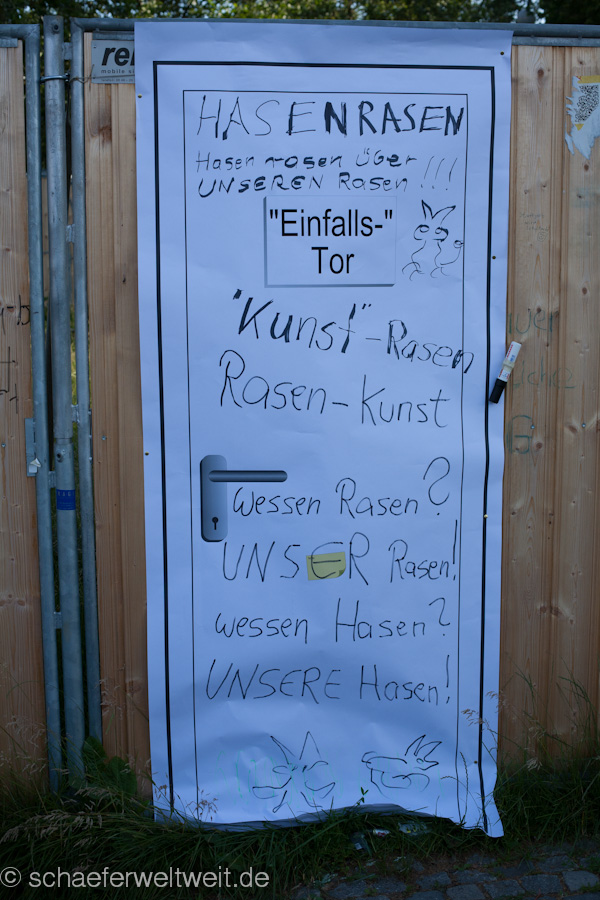 HASENRASEN
Hasen rasen über
UNSEREN Rasen !!!
"Einfalls-"
Tor
"Kunst"-Rasen
Rasen-Kunst
wessen Rasen?
UNSER Rasen!
wessen Hasen?
UNSERE Hasen!
© schaeferweltweit.de